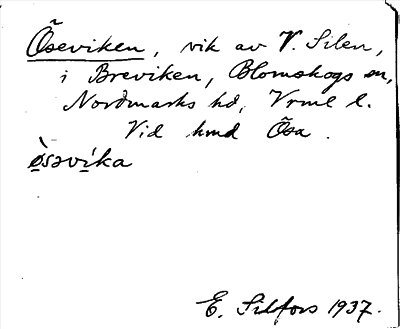 Öseviken, vik av V. Silen,
i Breviken, Blomskogs sn,
Nordmarks hd, Vrml l.
Vid hmd Ösa.
ø̀səvíka
E. Silfors 1937.